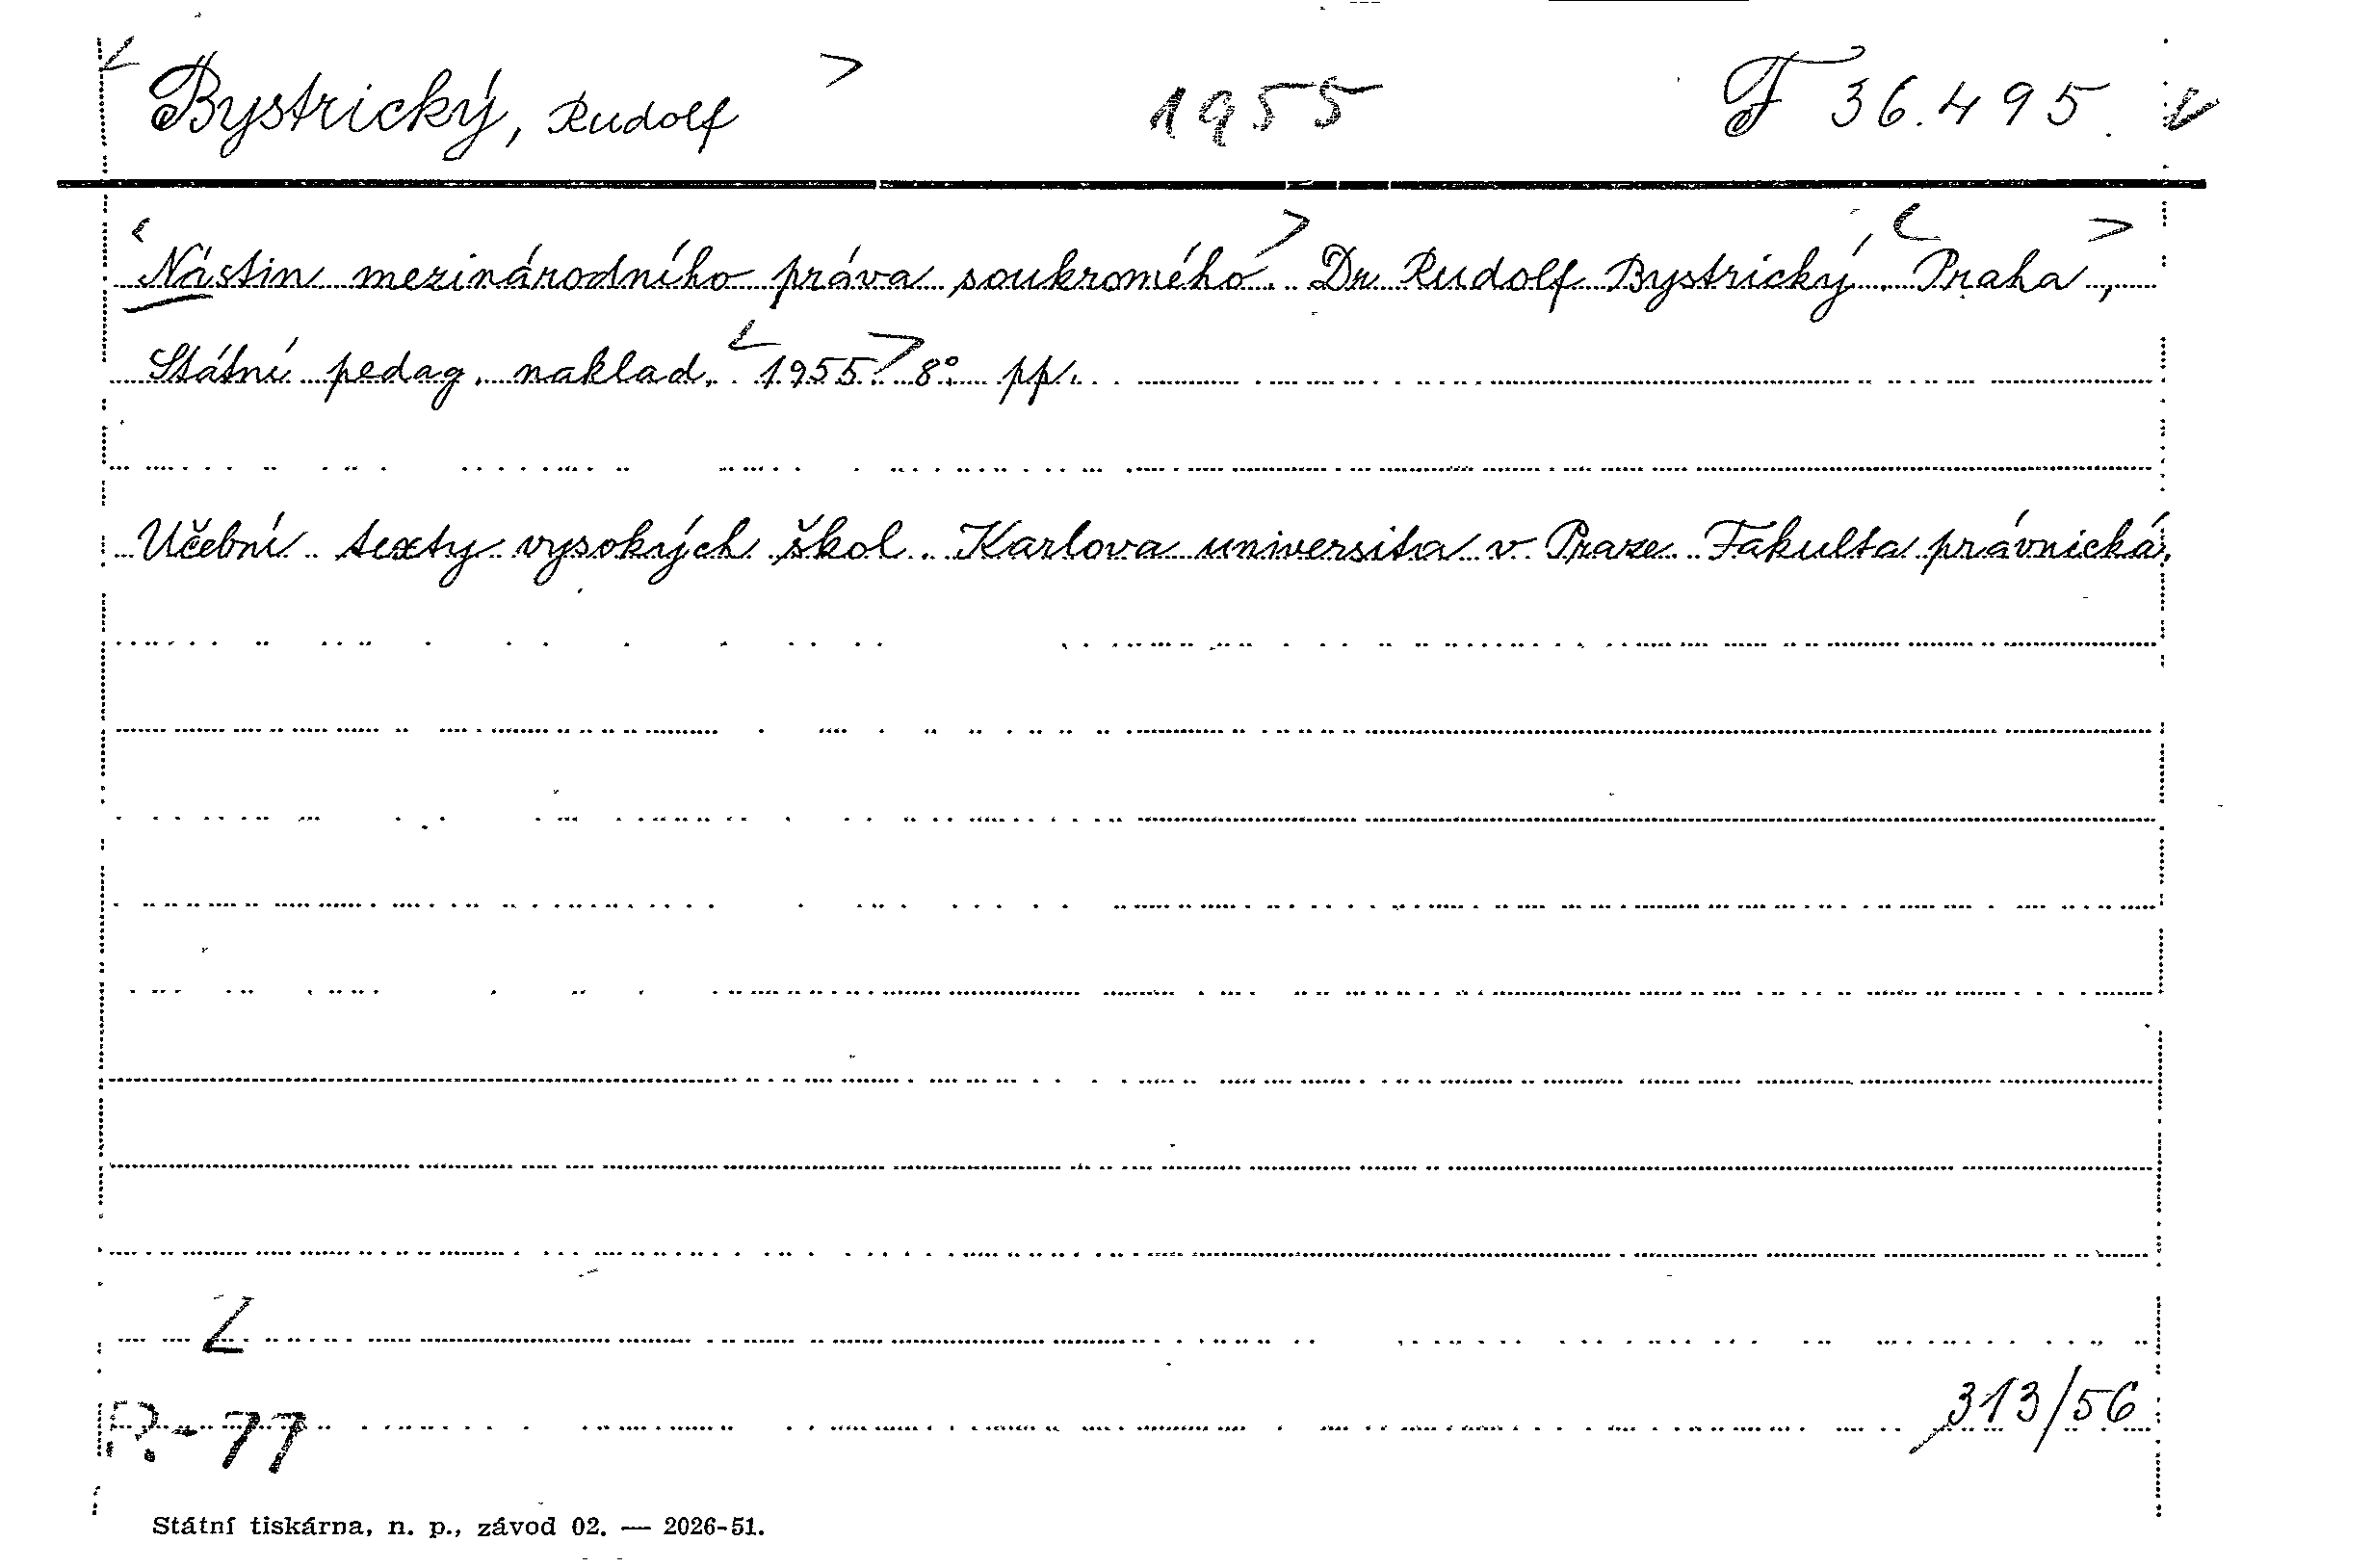 Bystrický, Rudolf 1955 F 36.495.
Nástin mezinárodního práva soukromého. Dr Rudolf Bystrický. Praha,
Státní pedag. naklad. 1955. 8° pp.
Učební texty vysokých škol. Karlova universita v Praze. Fakulta právnická.
Z
P.-77
313/56
Státní tiskárna, n. p., závod 02. — 2026-51.